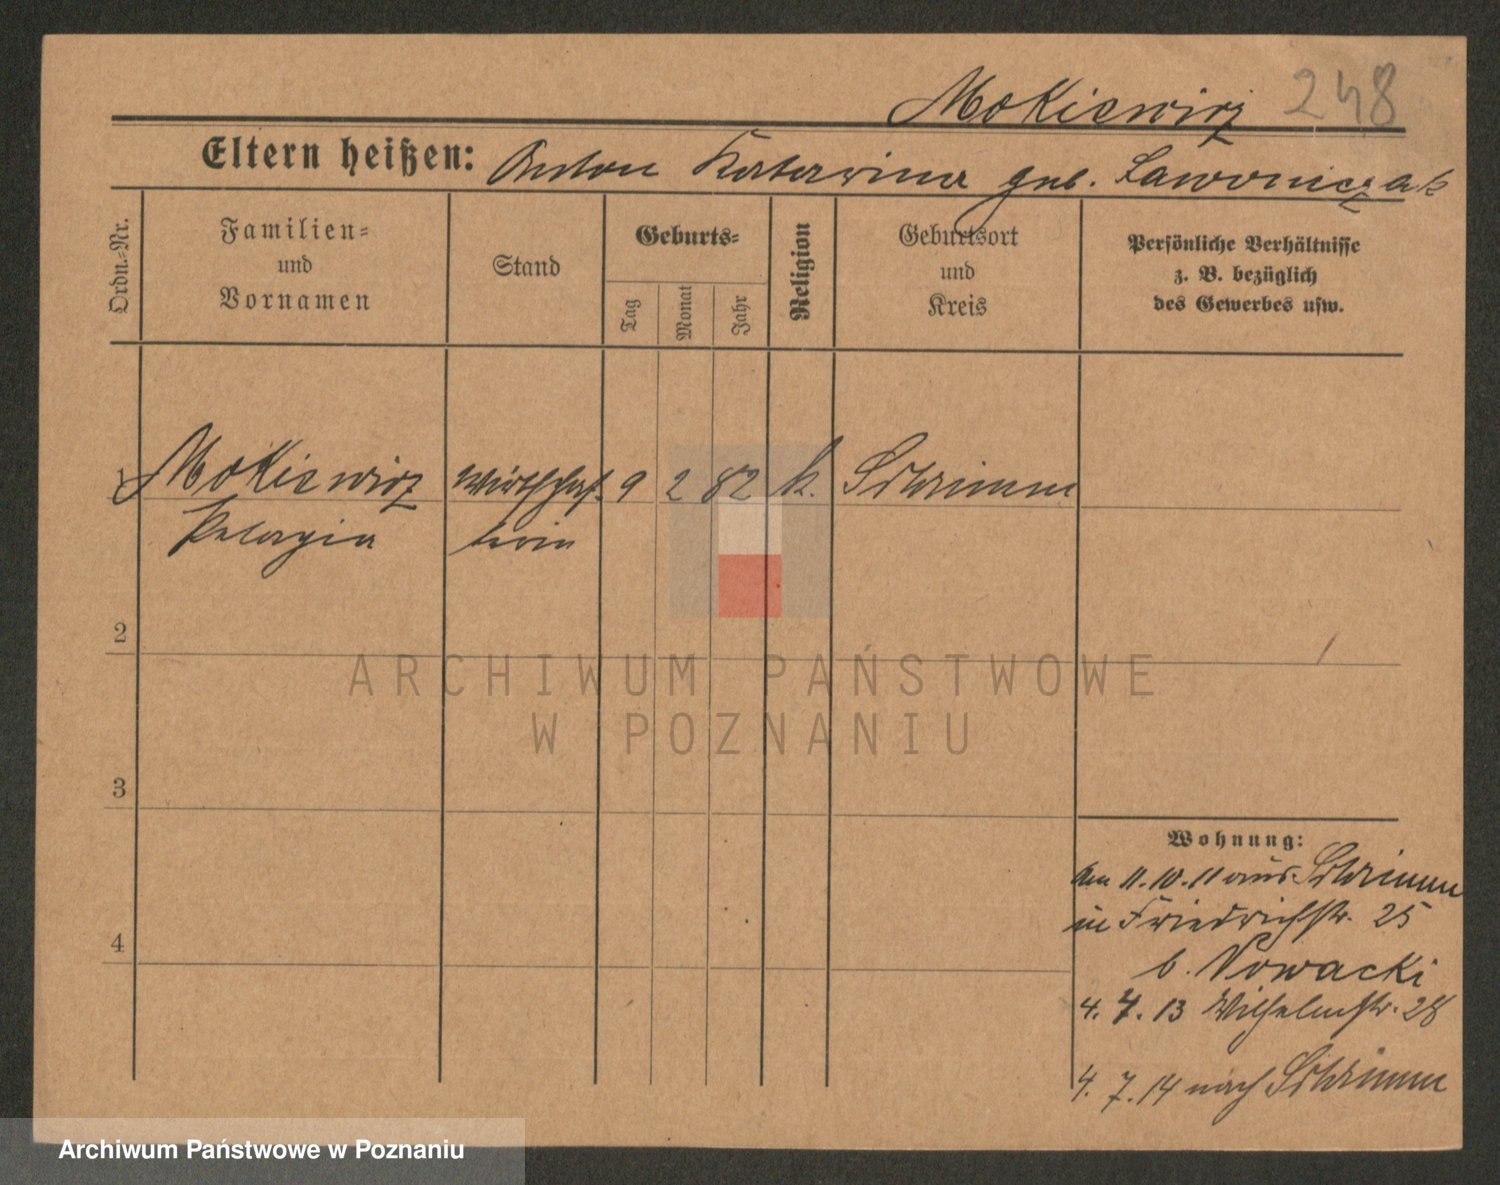 Mokiewicz 248
Eltern heißen: Anton Katarina geb. Lawoniczak
Ordn.-Nr.
Familien-
und
Vornamen
Stand
Geburts-
Tag
Monat
Jahr
Religion
Geburtsort
und
Kreis
Persönliche Verhältnisse
z. B. bezüglich
des Gewerbes usw.
1 Mokiewicz Wirtschaf- 9 2 82 k. Schrimm
Pelagia terin
2
3
4
Wohnung:
den 11.10.11 aus Schrimm
in Friedrichstr. 25
b. Nowacki
4. 7. 13 Wilhelmstr. 28
4. 7. 14 nach Schrimm
ARCHIWUM PAŃSTWOWE
W POZNANIU
Archiwum Państwowe w Poznaniu